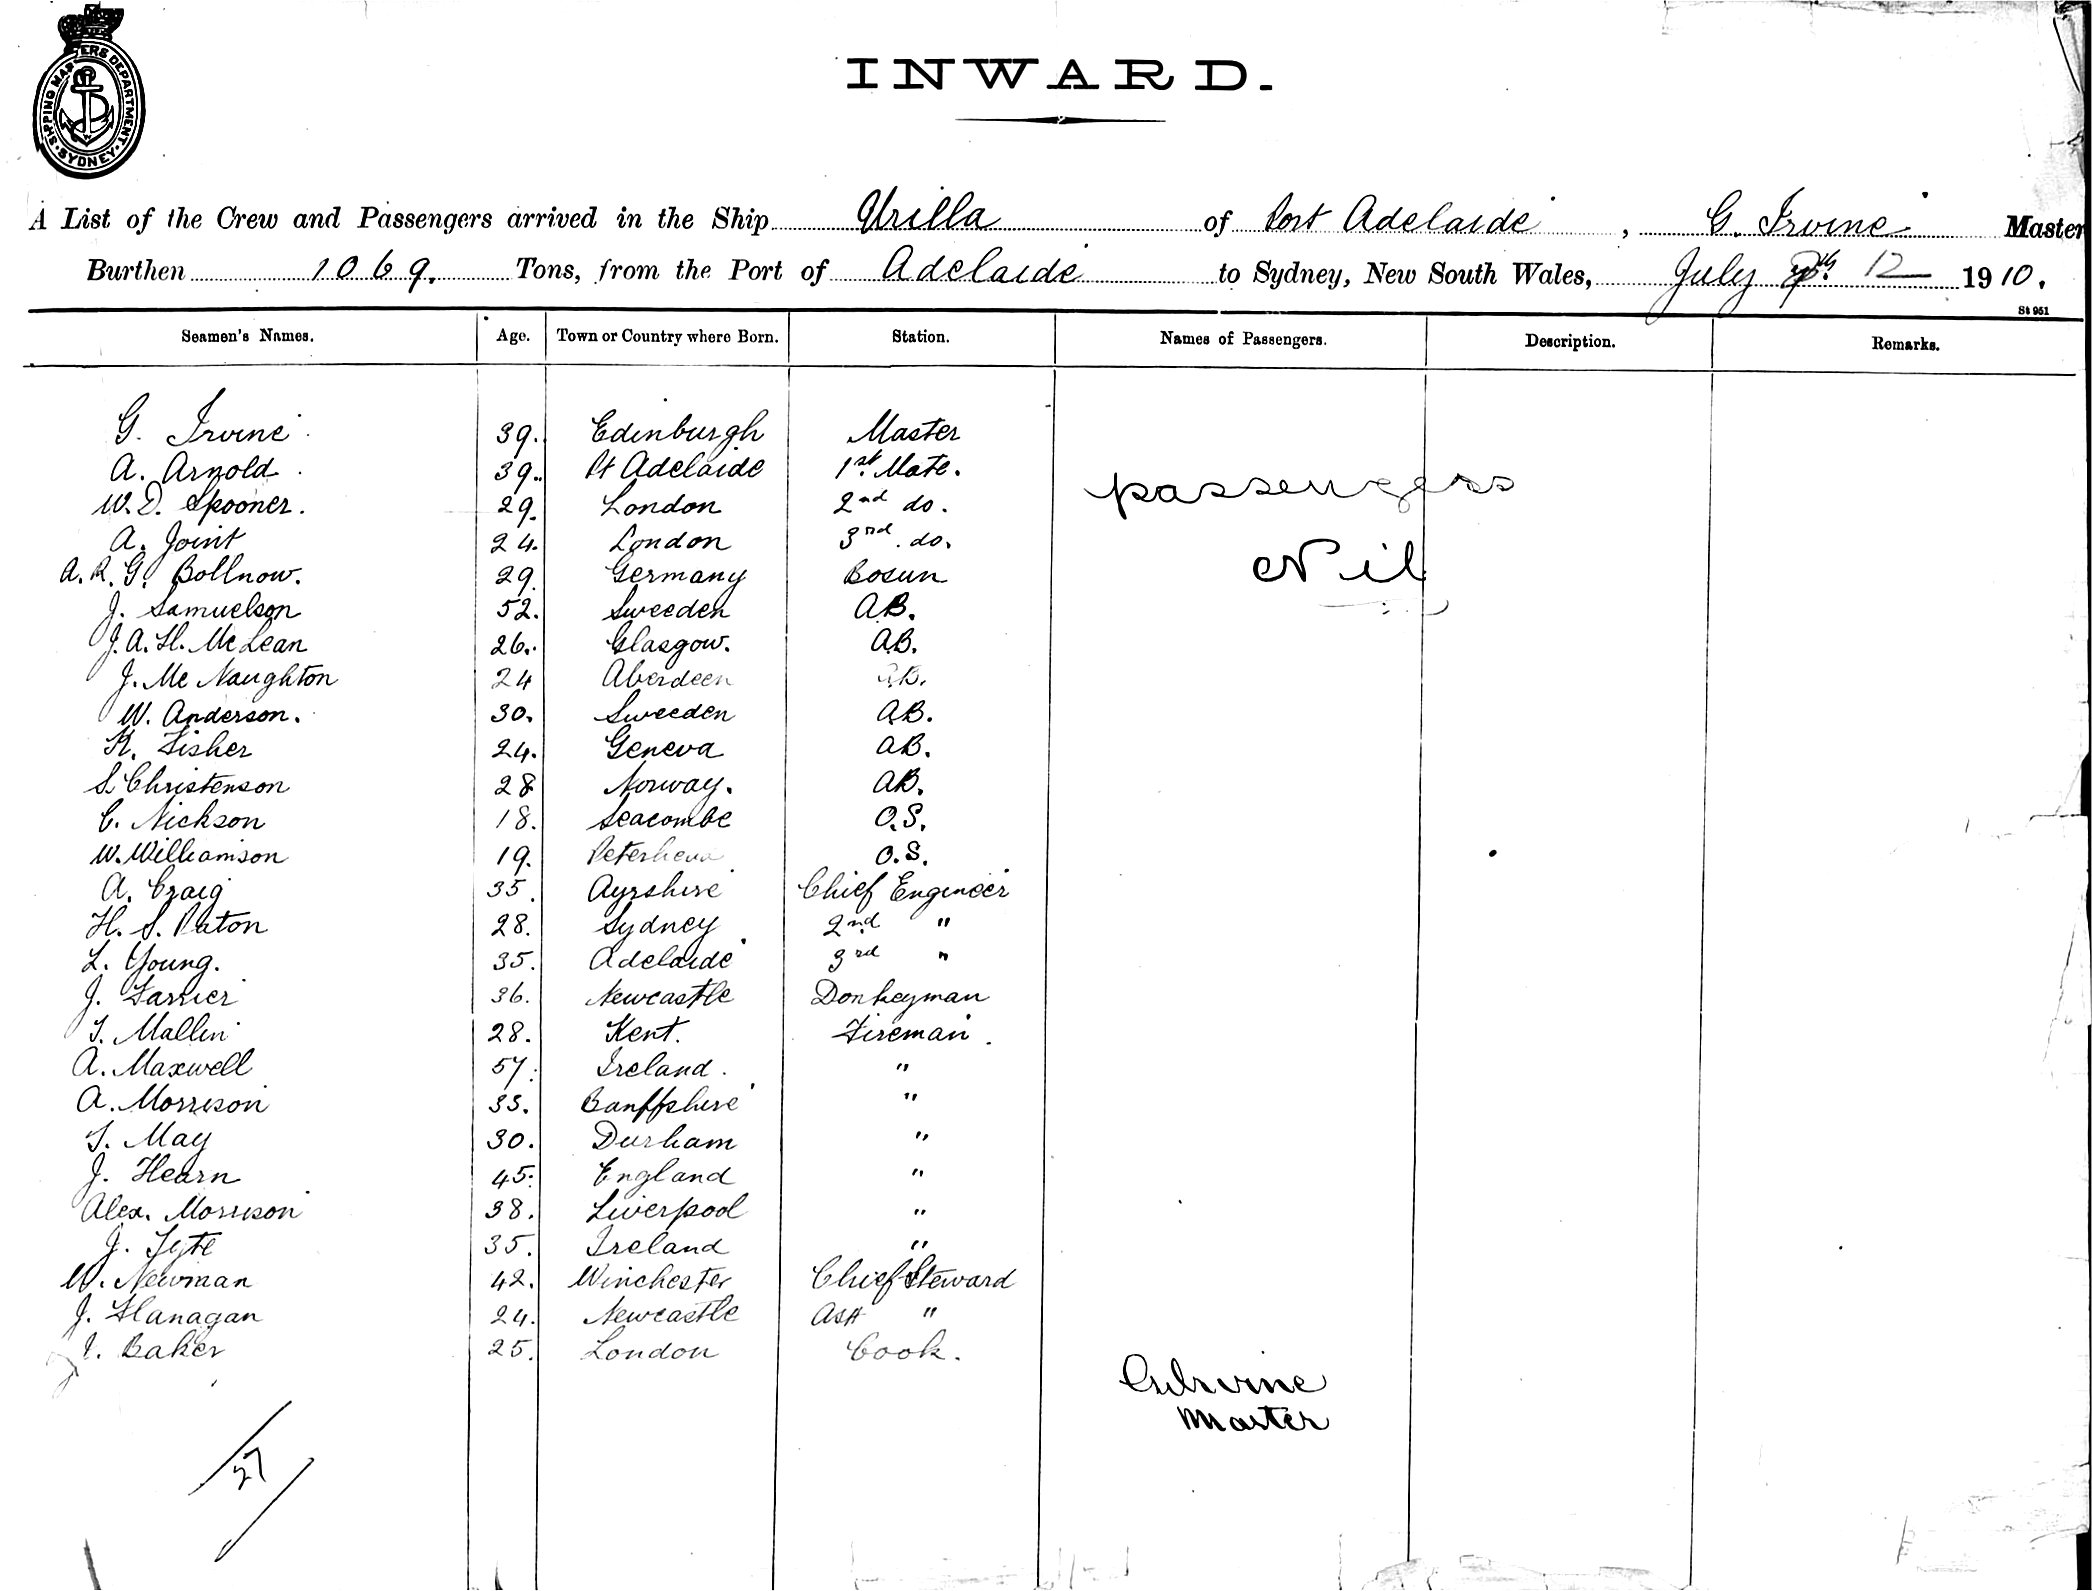 SHIPPING MASTERS DEPARTMENT. SYDNEY.
INWARD.
A List of the Crew and Passengers arrived in the Ship Urilla of Port Adelaide, G. Irvine Master
Burthen 1069. Tons, from the Port of Adelaide to Sydney, New South Wales, July 12 1910.
St 951
Seamen's Names. Age. Town or Country where Born. Station. Names of Passengers. Description. Remarks.
G. Irvine 39. Edinburgh Master
A. Arnold 39. Pt Adelaide 1st Mate.
passengers
W. D. Spooner. 29. London 2nd do.
A. Joint 24. London 3rd do.
Nil
A. R. G. Bollnow. 29 Germany Bosun
J. Samuelson 52. Sweeden AB.
J. A. H. McLean 26. Glasgow. AB.
J. McNaughton 24 Aberdeen AB.
W. Anderson. 30. Sweeden AB.
K. Fisher 24. Geneva AB.
S. Christenson 28 Norway. AB.
C. Nickson 18. Seacombe O.S.
W. Williamson 19. O.S.
A. Craig 35. Ayrshire Chief Engineer
H. S. Paton 28. Sydney 2nd "
L. Young. 35. Adelaide 3rd "
J. Farrier 36. Newcastle Donkeyman
T. Mallin 28. Kent. Fireman.
A. Maxwell 57. Ireland. "
A. Morrison 33. Banffshire "
T. May 30. Durham "
J. Hearn 45. England "
Alex. Morrison 38. Liverpool "
J. Tyte 35. Ireland "
W. Newman 42. Winchester Chief Steward
J. Flanagan 24. Newcastle Asst "
J. Baker 25. London Cook.
G Irvine
Master
27